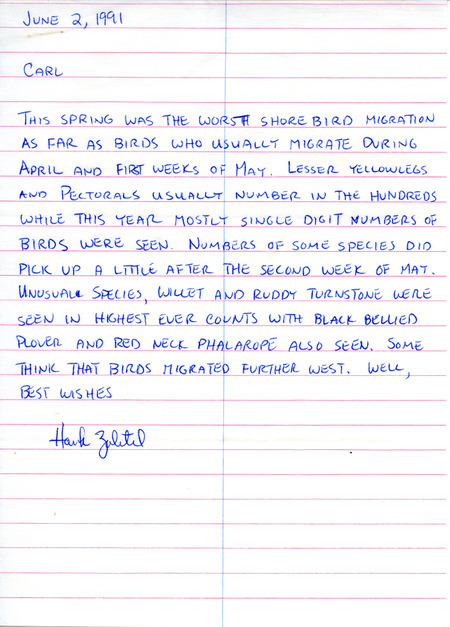 June 2, 1991
Carl
This spring was the worst shore bird migration
as far as birds who usually migrate during
April and first weeks of May. Lesser Yellowlegs
and Pectorals usually number in the hundreds
while this year mostly single digit numbers of
birds were seen. Numbers of some species did
pick up a little after the second week of May.
Unusual species, Willet and Ruddy Turnstone were
seen in highest ever counts with Black Bellied
Plover and Red Neck Phalarope also seen. Some
think that birds migrated further west. Well,
Best wishes
Hank Zaletel